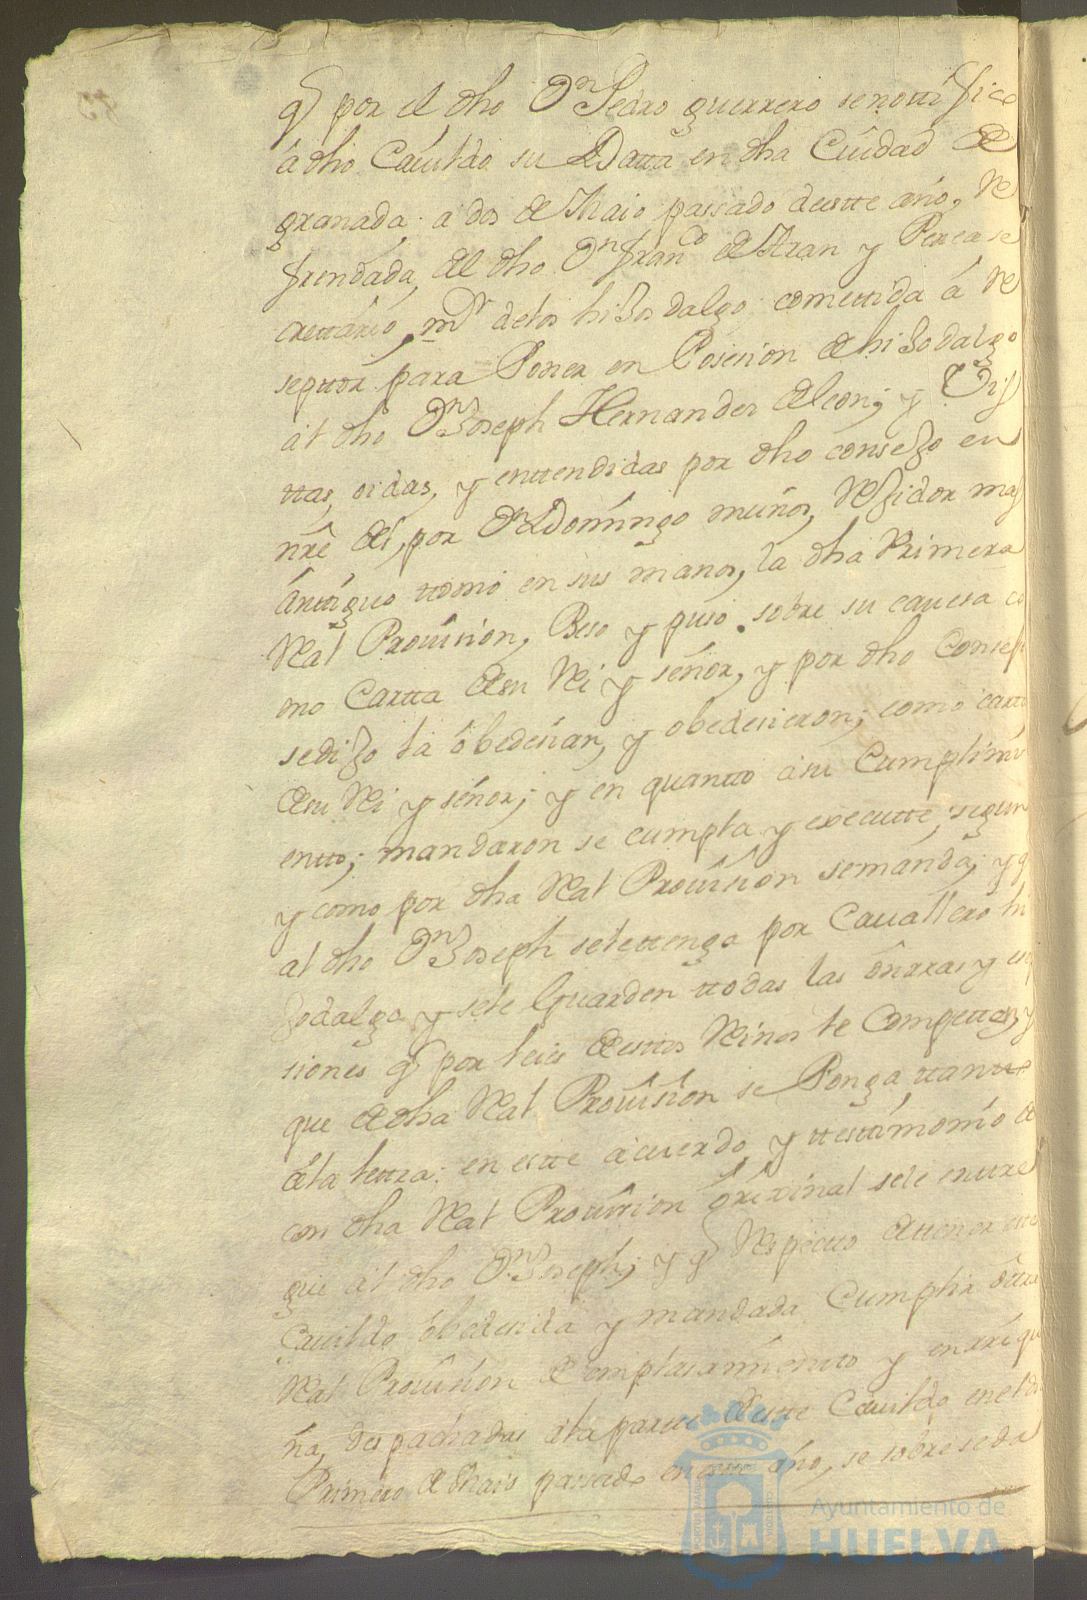 q por el dho Dn Pedro guerrero se notti fice
â dho Cavildo su Datta en dha Ciudad de
granada a dos de Maio passado deestte año, Re
frendada, del dho Dn Franco de Aran y Perea se
crettario, mr delos hiJos dalgo comettida á Re
septtor para Poner en Posesion de hiJodalgo
al dho Dn Joseph Hernandes de leon; y Vis
ttas, oidas, y enttendidas por dho conseJo en
nre del, por Dn Domingo muños, ReJidor mas
ânttiguo ttomó en sus manos, la dha Primera
Real Provision, Beso y puso sobre su cavesa co
mo Cartta de su Rei y señor, y por dho Consejo
se diJo la ôbedesian, y obedesieron; como cartta
de su Rei y señor; y en quantto a su Cumplimi
entto; mandaron se cumpla y executte, segun
y como por dha Real Provision se manda; y q
al dho Dn Joseph se le ttenga por Cavallero hi
Jodalgo y se le Guarden ttodas las ônrras y es
siones q por leies de esttos Reinos le Competten, y
que de dha Real Provision se Ponga ttantto
â la lettra en estte acuerdo y ttesttimonio de
con dha Real Provision ôrixinal se le enttre
gue al dho Dn Joseph; y q Respectto de ttener estte
Cavildo ôbedesida y mandada Cumplir ôttra
Real Provision de emplasamientto y
ña, despachadas â la partte de estte Cavildo en el dia
Primero de Maio passado en estte año, se sobreseda
Ayuntamiento de
HUELVA